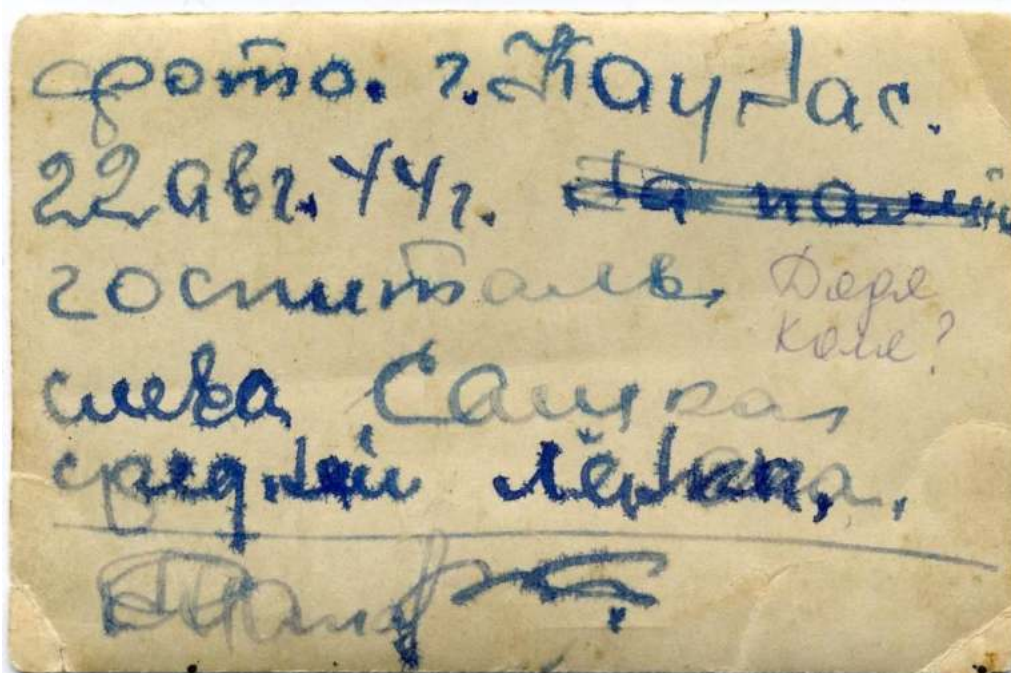 фото. г. Каунас.
22 авг. 44 г. На память
госпиталь,
Дядя
Коля?
слева Сашка,
средний Лёнька,